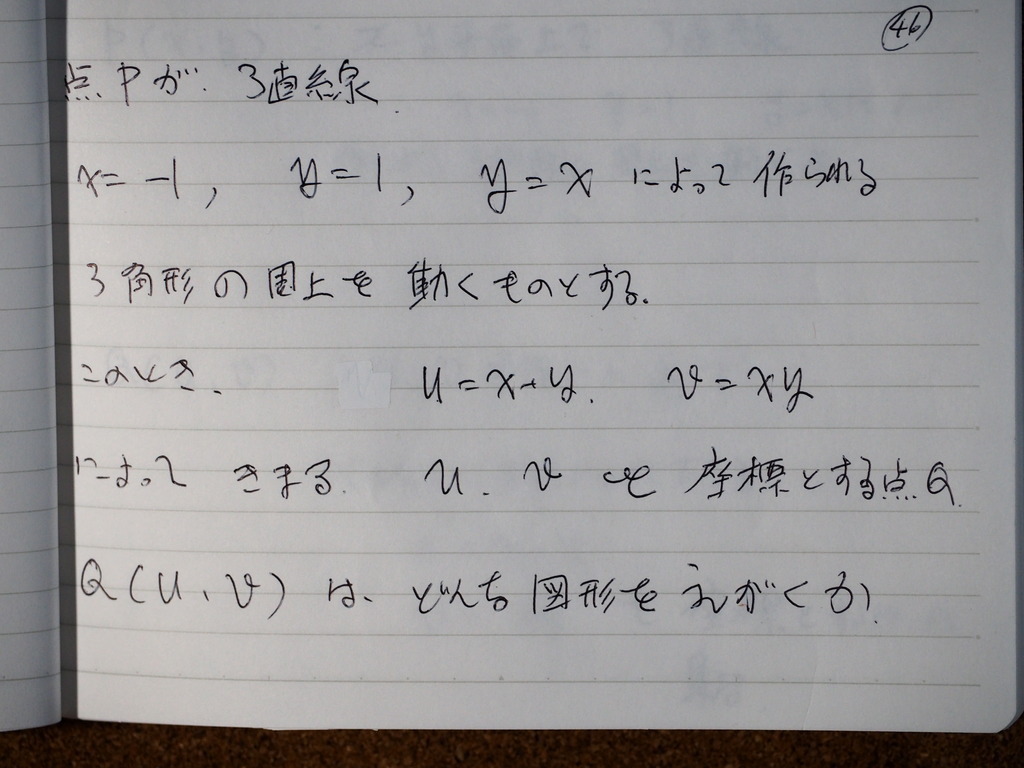 46
点Pが 3直線
x=-1, y=1, y=x によって作られる
3角形の周上を動くものとする.
このとき. u=x+y. v=xy
によってきまる. u. v を座標とする点Q.
Q(u, v) は、どんな図形をえがくか